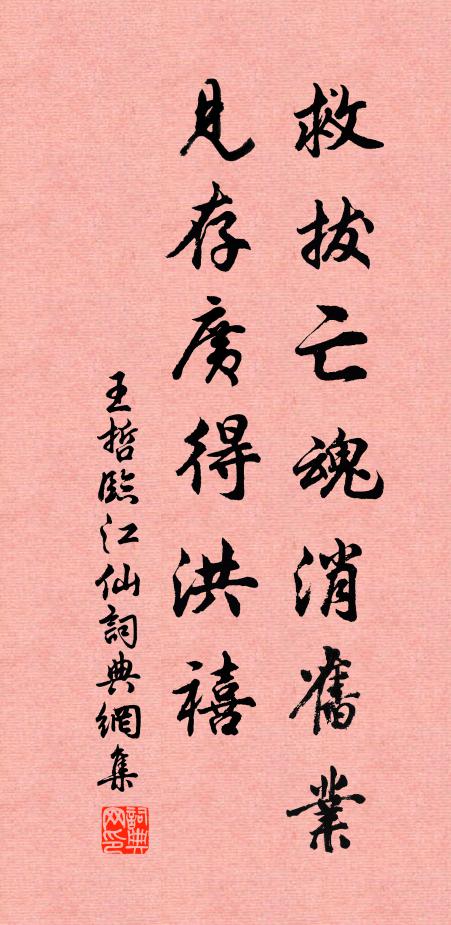 救拔亡魂消舊業
見存廣得洪禧
王哲臨江仙詞典網集
詞典网印